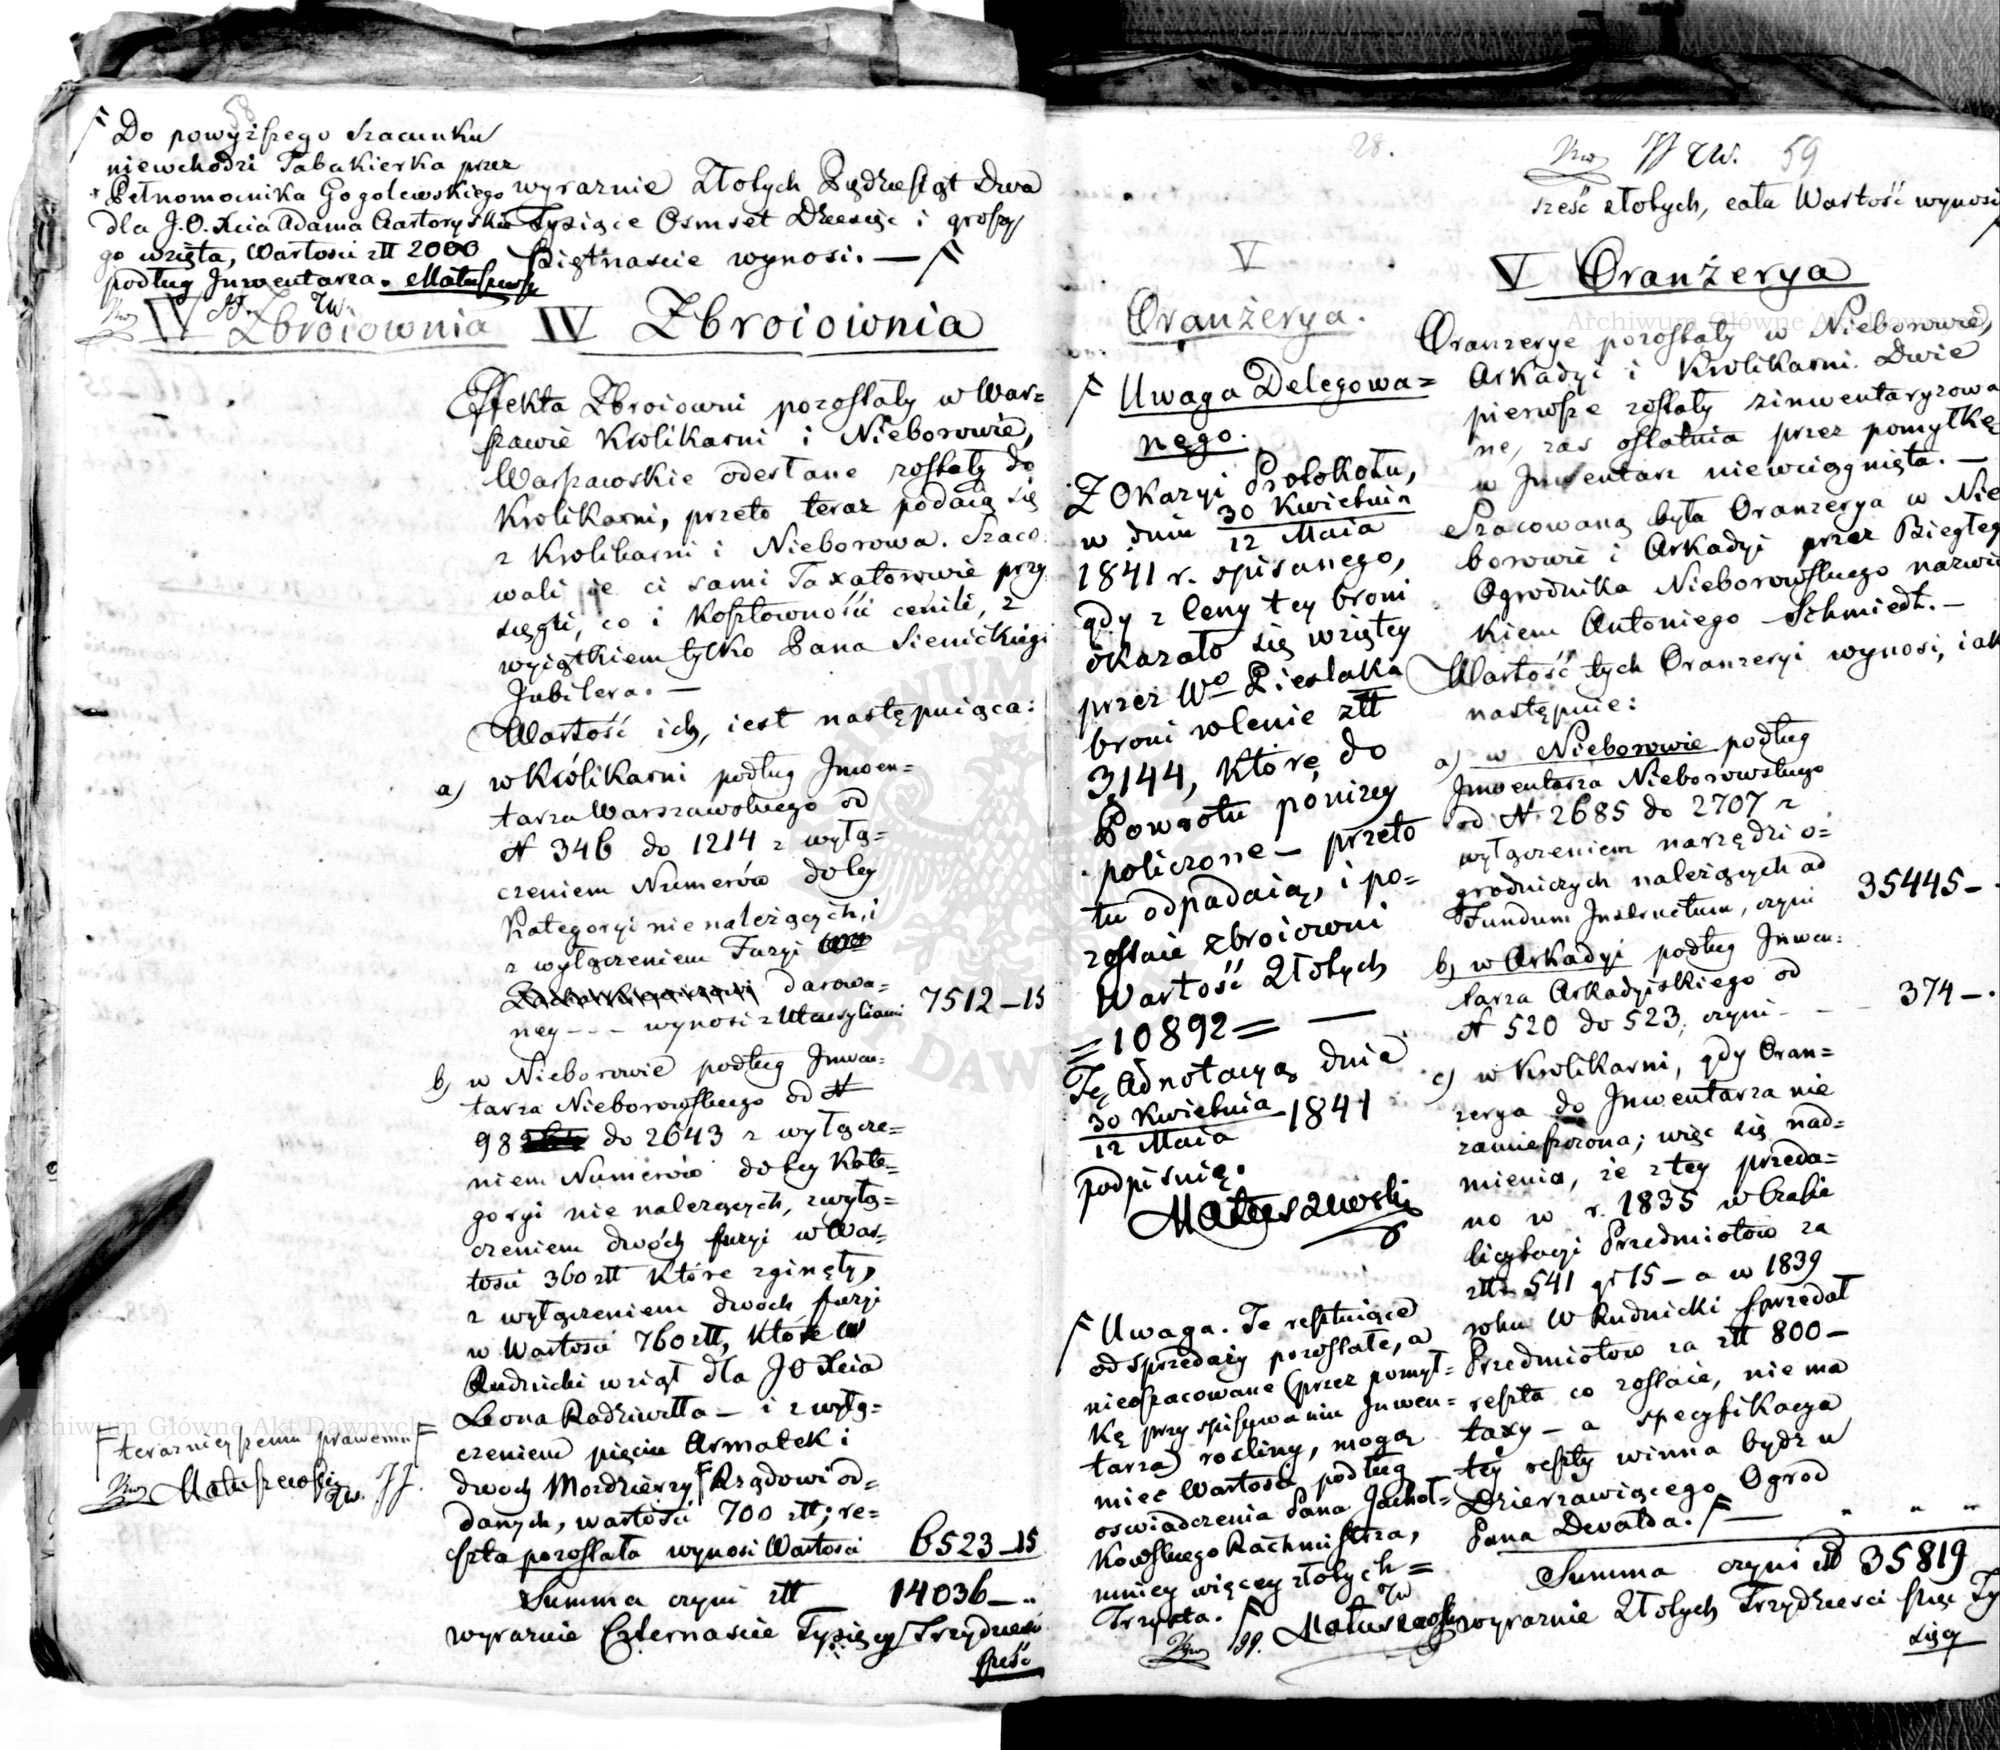 58
Do powyższego szacunku
niewchodzi Tabakierka przez
Pełnomocnika Gogolewskiego
dla J.O. Xcia Adama Czartoryskie
go wzięta, Wartości złł 2000
podług Inwentarza. Matuszewski
IV Zbroiownia
wyraznie Złotych Pięдziesiąt Dwa
Tysiące Osmset Dziesięć i groszy
Piętnascie wynosi. —
IV Zbroiownia
Effekta Zbroiowni pozostały w War=
szawie Krolikarni i Nieborowie,
Warszawskie odesłane zostały do
Krolikarni, przeto teraz podaią się
z Krolikarni i Nieborowa. Szaco
wali je ci sami Taxatorowie przy
sięgli, co i Kosztowności cenili, z
wyiątkiem tylko Pana Sienickiego
Jubilera. —
Wartość ich, iest następuiąca:
a) w Królikarni podług Inwen=
tarza Warszawskiego od
N 346 do 1214 z wyłą=
czeniem Numerów do tey
Kategoryi nie należących, i
z wyłączeniem Fuzyi
darowa=
ney - - - wynosi z Utensyliami 7512—15
b) w Nieborowie podług Inwen=
tarza Nieborowskiego od N
98 do 2643 z wyłącze=
niem Numerów do tey Kate=
goryi nie należących, z wyłą=
czeniem dwóch fuzyi w War=
tości 360 złł Które zginęły,
z wyłączeniem dwoch fuzyi
w Wartości 760 złł, Które W
Rudnicki wziął dla JO Xcia
Leona Radziwiłła — i z wyłą=
czeniem pięciu Armatek i
dwoch Mozdzierzy Rządowi od=
danych, wartości 700 złł; re=
szta pozostała wynosi Wartości 6523—15
Summa czyni złł 14036—..
wyraznie Czternascie Tysięcy Trzydzieści
sześć
terazniejszemu prawemu
Matuszewski
28.
59
sześć złotych, cała Wartość wynosi
V
Oranżerya.
Uwaga Delegowa=
nego.
Z Okazyi Protokołu,
w dniu 30 Kwietnia
12 Maia
1841 r. spisanego,
gdy z Ceny tey broni
okazało się wziętey
przez Wo Pieslaka
broni w Cenie złł
3,144, Które do
Powrotu ponizey
policzone — przeto
tu odpadaią, i po=
zostaie Zbroiowni
Wartość Złotych
=10892= —
Tę Adnotacyą dnia
30 Kwietnia 1841
12 Maia
podpisuię.
Matuszewski
Uwaga. Te resztuiące
od sprzedaży pozostałe, a
nieoszacowane (przez pomył=
kę przy spisywaniu Inwen=
tarza) rosliny, mogą
miec Wartości podług
oswiadczenia Pana Jachoł=
kowskiego Rachmistrza,
mniey więcey złotych =
Trzysta.
Matuszewski
V Oranżerya
Oranzerye pozostały w Nieborowie,
Arkadyi i Krolikarni. Dwie
pierwsze zostały zinwentaryzowa
ne, zas ostatnia przez pomyłkę
w Inwentarz niewciągnięta. —
Szacowaną była Oranzerya w Nie
borowie i Arkadyi przez Biegłego
Ogrodnika Nieborowskiego nazwis
kiem Antoniego Schmiedt. —
Wartość tych Oranzeryi wynosi, iak
następuie:
a) w Nieborowie podług
Inwentarza Nieborowskiego
od N 2685 do 2707 z
wyłączeniem narzędzi o=
grodniczych należących ad
Fundum Instructum, czyni 35445—.
b) w Arkadyi podług Inwen:
tarza Arkadyiskiego od
N 520 do 523, czyni - - - 374—.
c) w Krolikarni, gdy Oran=
zerya do Inwentarza nie
zamieszczona; więc się nad=
mienia, że z tey przeda=
no w r. 1835 w trakcie
licytacyi Przedmiotów za
złł 541 gr 15 — a w 1839
roku W Rudnicki sprzedał
Przedmiotów za złł 800—
reszta co zostaie, nie ma
taxy — a specyfikacya
tey reszty winna bydz u
Dzierzawiącego Ogrod
Pana Dewalda. —
Summa czyni złł 35819
wyraznie Złotych Trzydzieści pięć Ty
sięcy